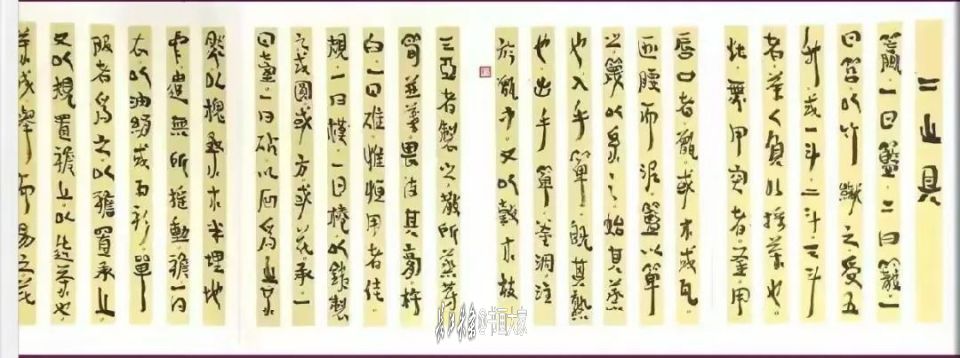 二之具
籯一曰籃二曰籠一
曰筥以竹織之受五
升或一斗二斗三斗
者茶人負以採茶也
灶無用突者釜用
唇口者甑或木或瓦
匪腰而泥籃以箄
之篾以系之始其蒸
也入乎箄既其熟
也出乎箄釜涸注
於甑中又以榖木枝
三亞者製之散所蒸芽
筍並葉畏流其膏杵
臼一曰碓惟恒用者佳
規一曰模一曰棬以鐵製
之或圓或方或花承一
曰臺一曰砧以石為之不
然以槐桑木半埋地
中遣無所搖動襜一曰
衣以油絹或雨衫單
服者為之以襜置承上
又以規置襜上以造茶也
茶成舉而易之芘